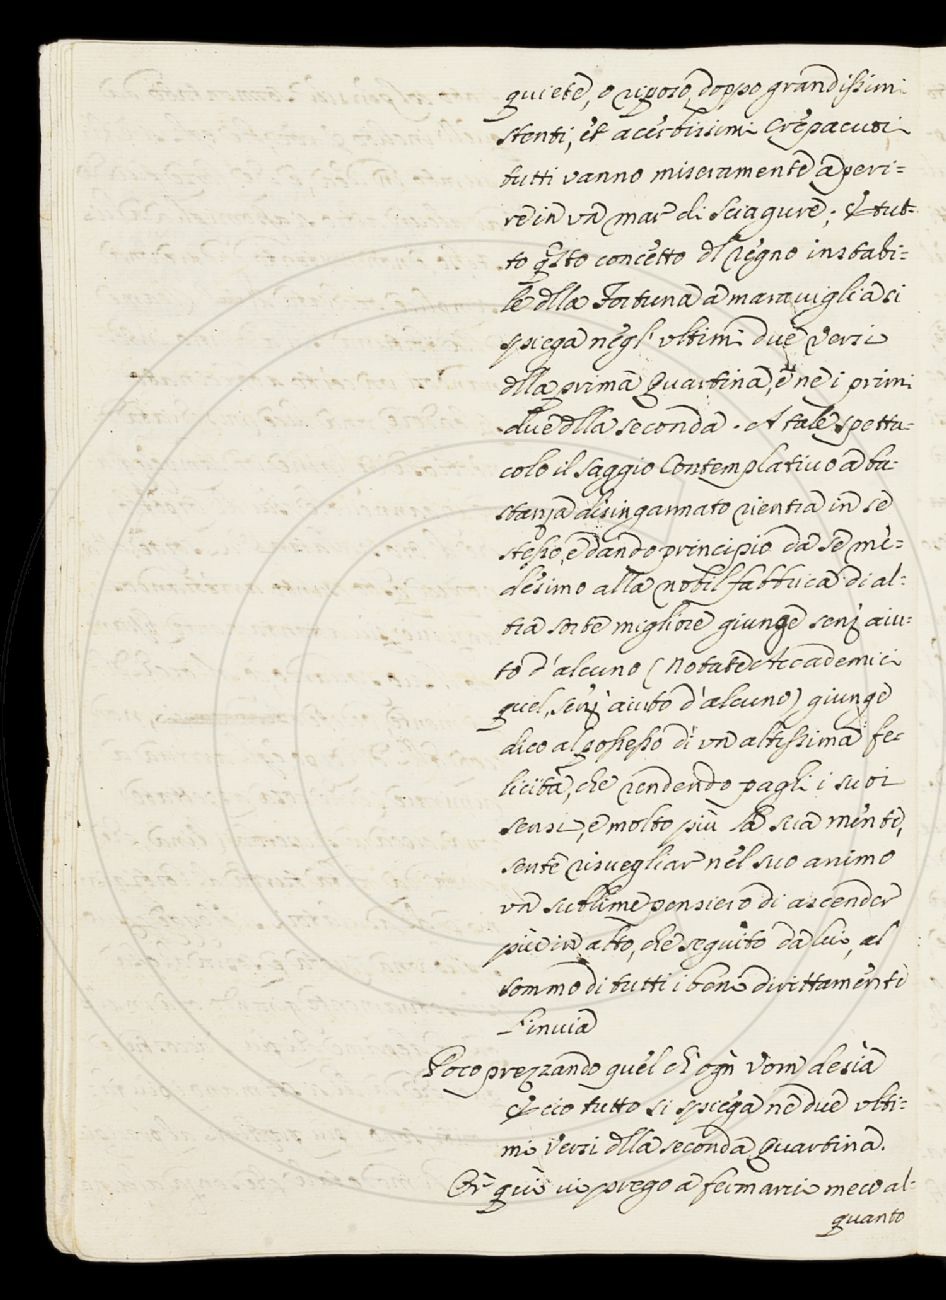 quiete, o riposo, doppo grandissimi
stenti, et acerbissimi Crepacuori,
tutti vanno miseramente a peri=
re in vn mar di sciagure; & tut=
to q̃sto concetto dl regno instabi=
le dlla Fortuna a marauiglia si
spiega negl' vltimi due Versi
dlla prima Quartina, e ne i primi
due dlla seconda. A tale spetta=
colo il saggio Contemplatiuo a ba=
stanza disingannato rientra in se
stesso, e dando principio da se me=
desimo alla nobil fabbrica di al=
tra sorte migliore giunge senz' aiu=
to d'alcuno (Notate Accademici
quel, senz' aiuto d'alcuno) giunge
dico al possesso di vn altissima fe=
licità, che rendendo paghi i suoi
sensi, e molto più la sua mente,
sente risuegliar nel suo animo
vn sublime pensiero di ascender
più in alto, che seguito da lui, al
sommo di tutti i beni dirittamente
l'inuia
Poco prezzando quel ch' ogn' Vom desia
& cio tutto si spiega ne due vlti=
mi Versi dlla seconda Quartina.
Or quì vi prego a fermarui meco al=
quanto